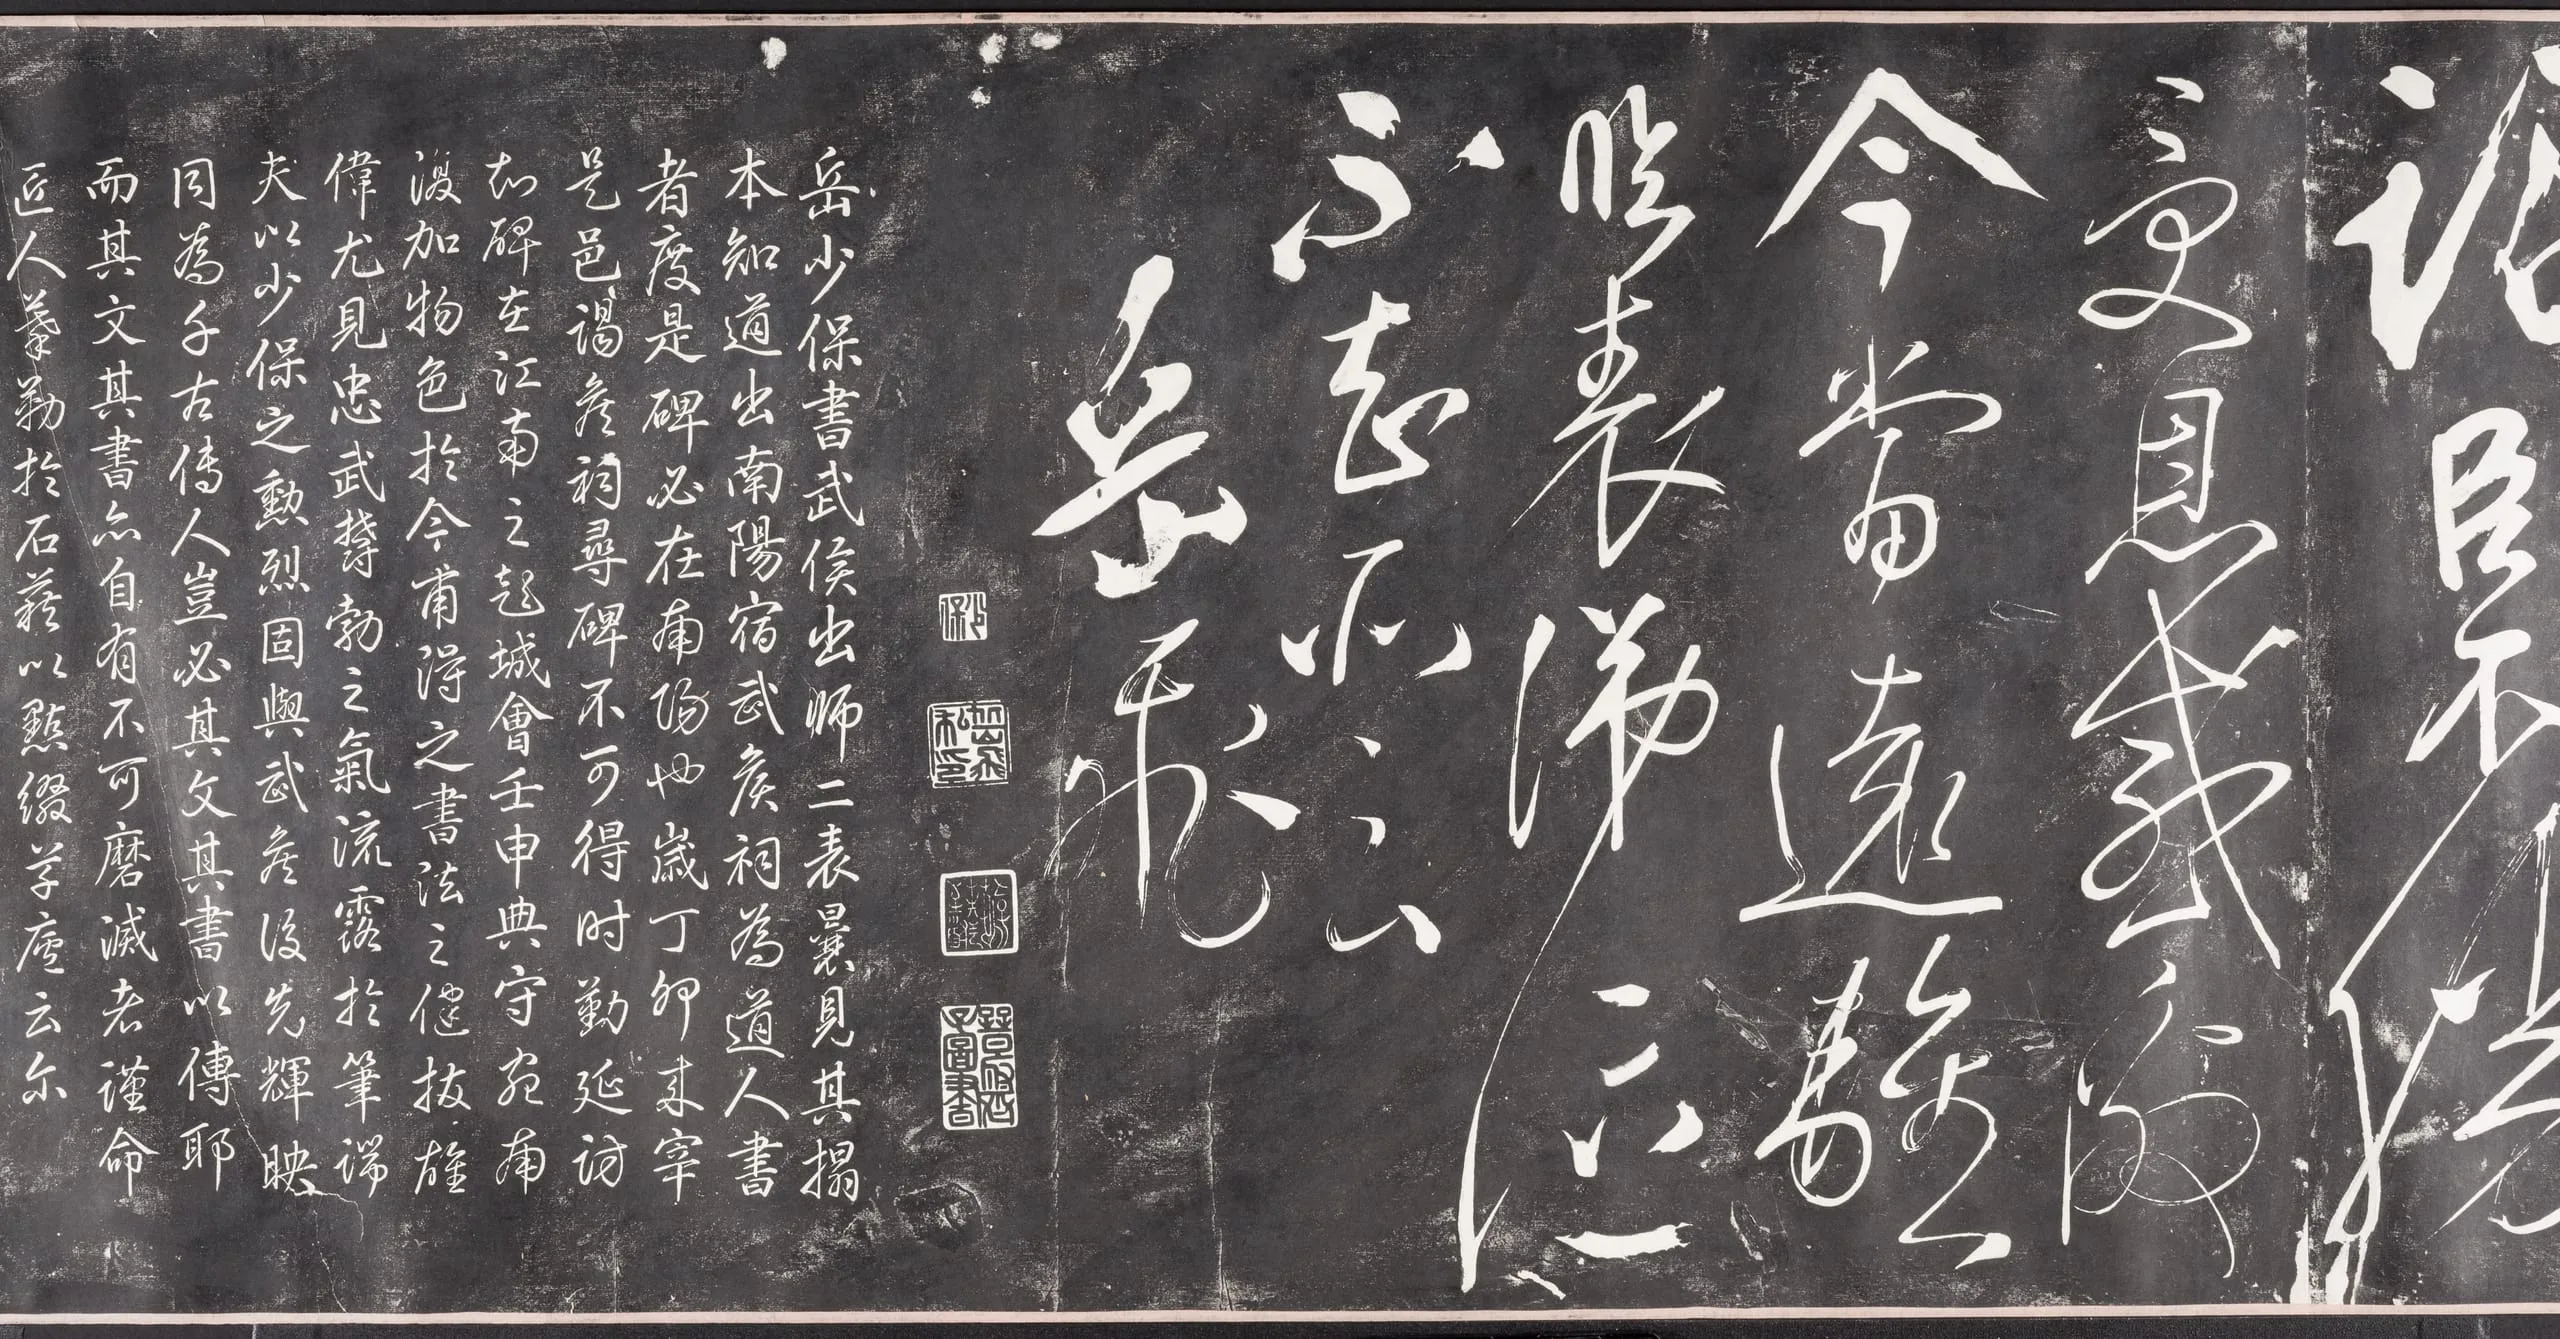 詔臣不勝
受恩感激
今當遠離
臨表涕泣
不知所云
岳飛
岳飛私印
岳少保書武侯出师二表曩見其搨
本知道出南陽宿武矦祠為道人書
者度是碑必在南阳也歲丁卯来宰
是邑謁矦祠尋碑不可得时勤延訪
知碑在江南之城會壬申典守宛南
復加物色於今甫得之書法之健拔雄
偉尤見忠武鬱勃之氣流露於筆端
夫以少保之勳烈固與武矦後先輝映
同為千古傳人豈必其文其書以傳耶
而其文其書亦自有不可磨滅者謹命
匠人摹勒於石藉以點綴草廬云尔